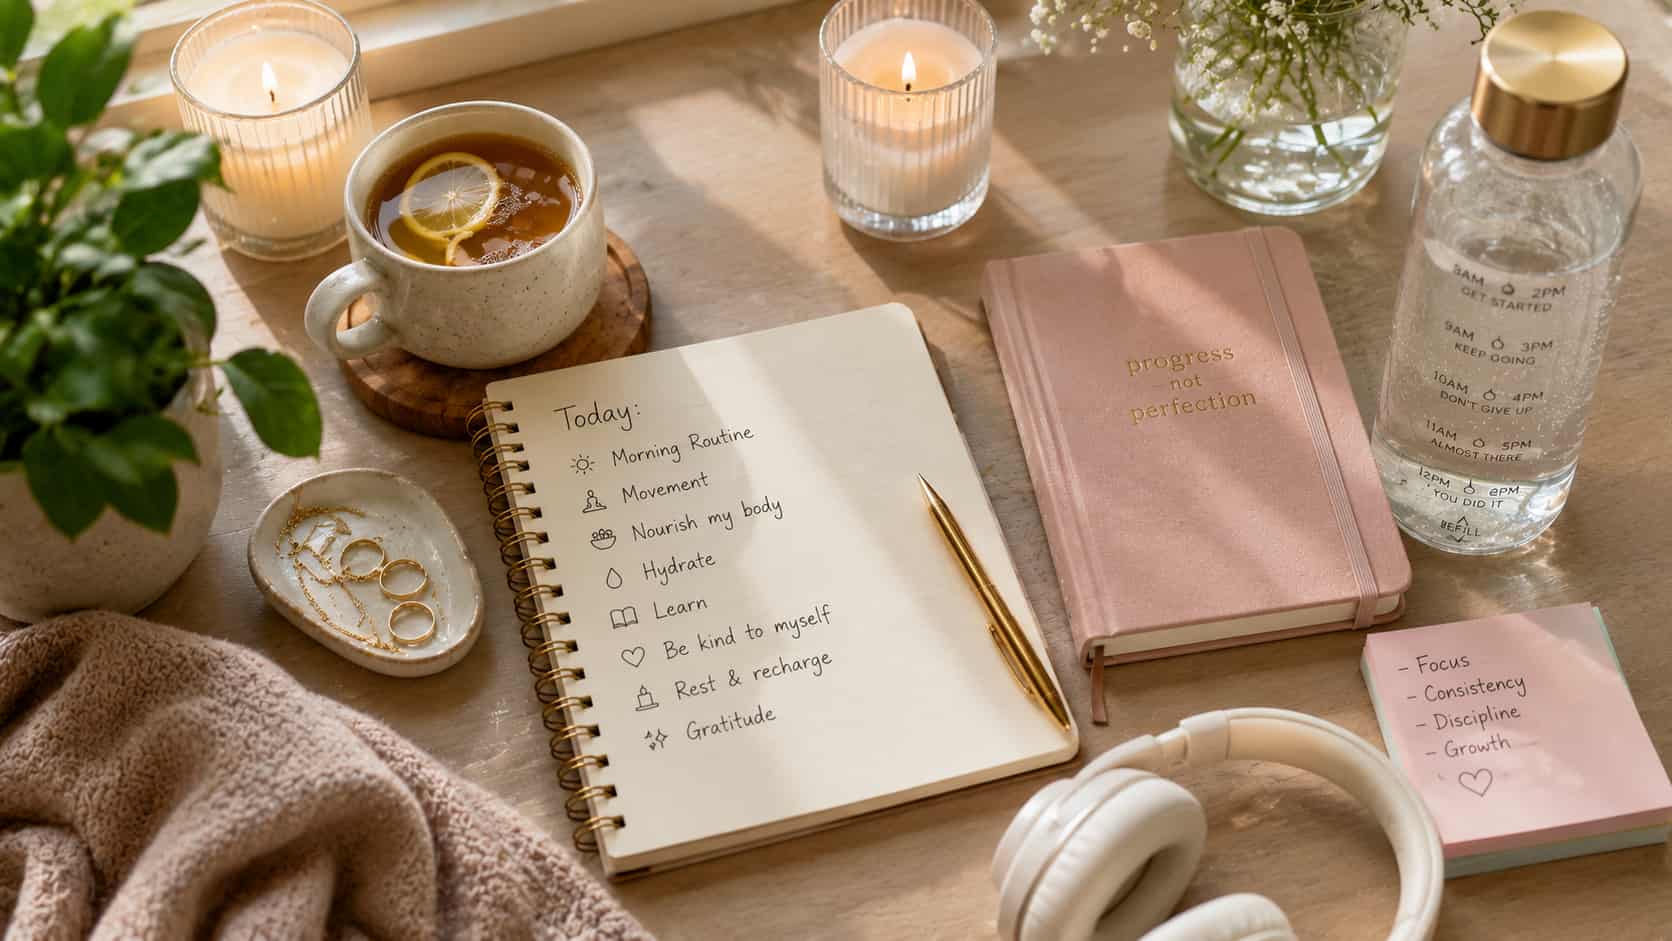 Today:
Morning Routine
Movement
Nourish my body
Hydrate
Learn
Be kind to myself
Rest & recharge
Gratitude
progress
not
perfection
8AM 2PM
GET STARTED
9AM 3PM
KEEP GOING
10AM 4PM
DON'T GIVE UP
11AM 5PM
ALMOST THERE
12PM 6PM
YOU DID IT
REFILL
- Focus
- Consistency
- Discipline
- Growth